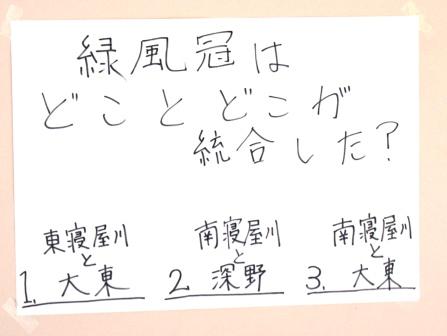 緑風冠は
どことどこが
統合した?
東寝屋川
と
1. 大東
南寝屋川
と
2. 深野
南寝屋川
と
3. 大東